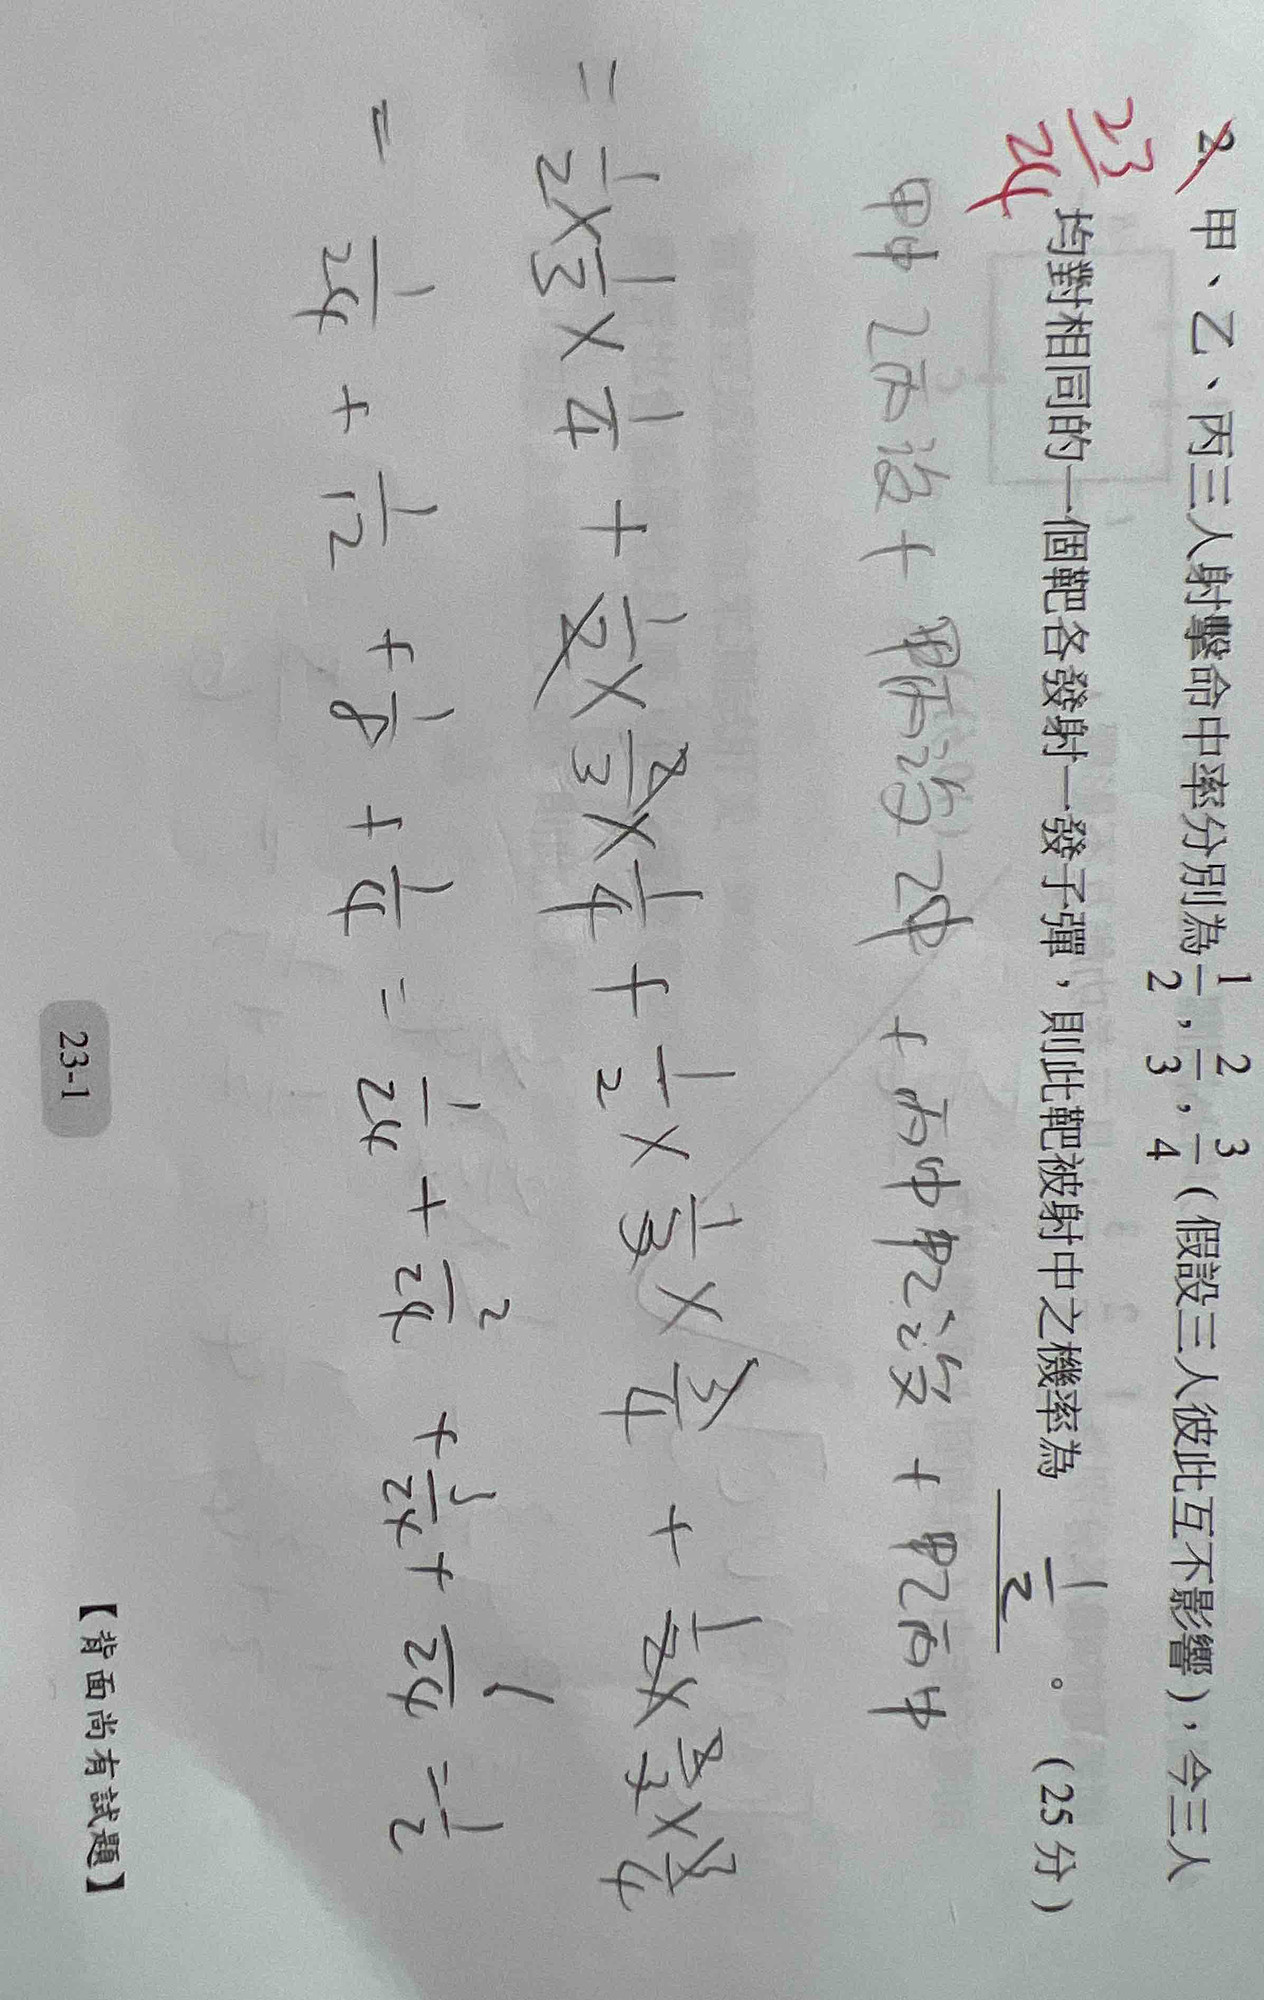 2. 甲、乙、丙三人射擊命中率分別為 1/2, 2/3, 3/4 (假設三人彼此互不影響),今三人
23/24
均對相同的一個靶各發射一發子彈,則此靶被射中之機率為 1/2 。(25分)
甲中乙丙沒+甲丙沒乙中+丙中甲乙沒+甲乙丙中
= 1/2 × 1/3 × 1/4 + 1/2 × 2/3 × 1/4 + 1/2 × 1/3 × 3/4 + 1/2 × 2/3 × 3/4
= 1/24 + 1/12 + 1/8 + 1/4 = 1/24 + 2/24 + = 1/2
【背面尚有試題】
23-1